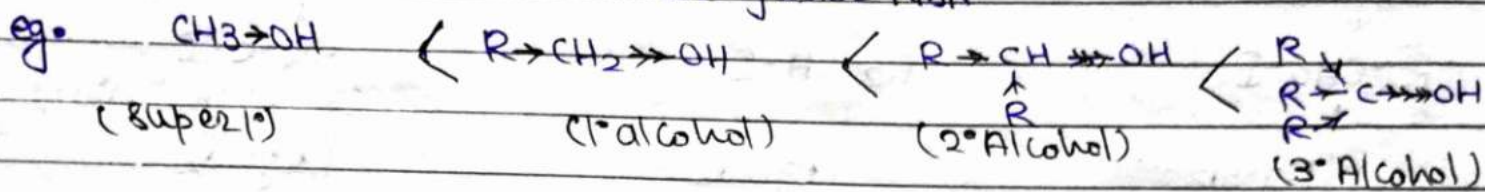 eg. CH3→OH < R→CH₂↠OH < R→CH⇶OH < R
↑ R→C→→→→OH
R R
(Super1°) (1°alcohol) (2°Alcohol) (3°Alcohol)